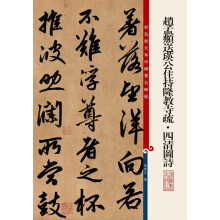 彩色放大本中國著名碑帖
趙孟頫送瑛公住持隆教寺疏·四清圖詩
著落望洋向若
不難浮尊者之杯
推波助瀾所當鼓